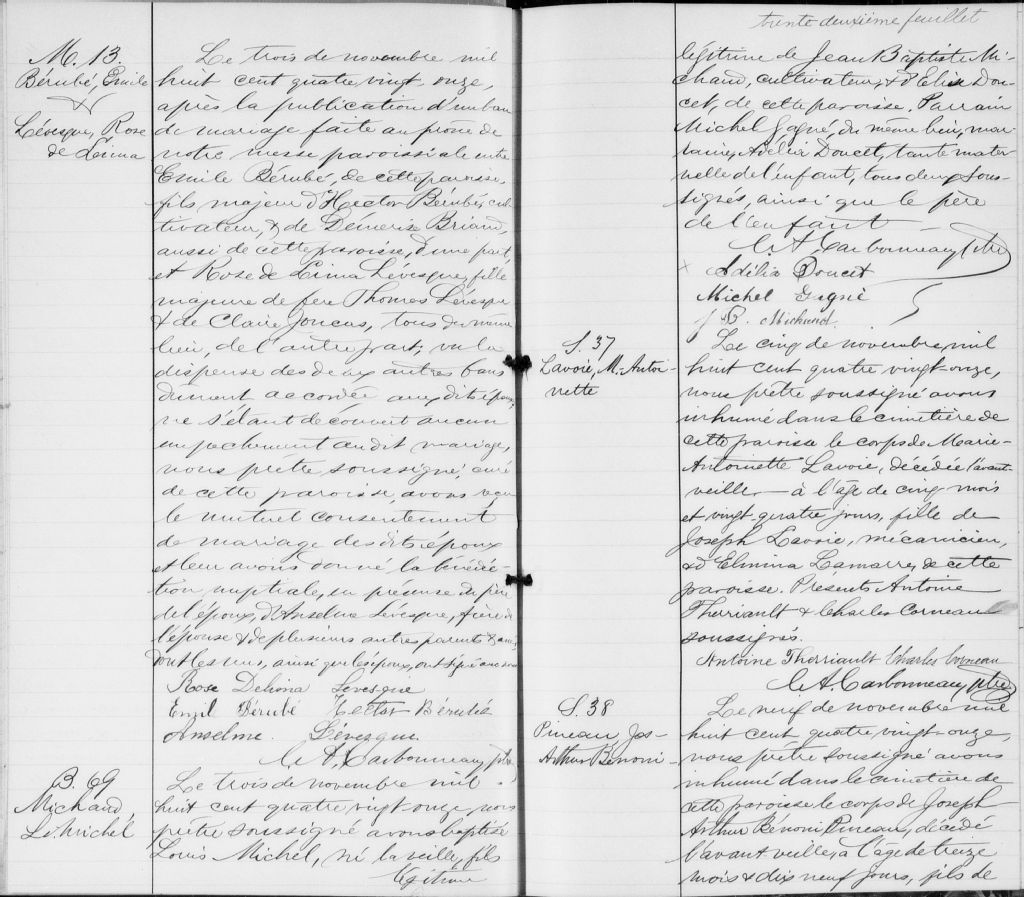 M. 13.
Bérubé, Emile
&
Lévesque, Rose
de Lima
Le trois de novembre mil
huit cent quatre vingt onze,
après la publication d'un ban
de mariage faite au prône de
notre messe paroissiale entre
Emile Bérubé, de cette paroisse,
fils majeur d'Hector Bérubé, cul
tivateur, & de Démerise Briand,
aussi de cette paroisse, d'une part,
et Rose de Lima Lévesque, fille
majeure de feu Thomas Lévesque
& de Claire Joncas, tous du même
lieu, de l'autre part; vu la
dispense des deux autres bans
dûment accordée aux dits époux,
ne s'étant découvert aucun
empêchement au dit mariage,
nous prêtre soussigné, curé
de cette paroisse avons reçu
le mutuel consentement
de mariage des dits époux
et leur avons donné la bénédic-
tion nuptiale, en présence du père
de l'époux, d'Anselme Lévesque, frère de
l'épouse & de plusieurs autres parents & amis
dont les uns, ainsi que les époux, ont signé avec nous
Rose Delima Levesque
Emil Bérubé Hector Bérubé
Anselme Lévesque
C. A. Carbonneau ptre
B. 69
Michaud
Ls Michel
Le trois de novembre mil
huit cent quatre vingt onze, nous
prêtre soussigné avons baptisé
Louis Michel, né la veille, fils
légitime
trente deuxième feuillet
légitime de Jean Baptiste Mi-
chaud, cultivateur, & d'Eliza Dou-
cet, de cette paroisse. Parrain
Michel Gagné, du même lieu, mar-
raine, Adélia Doucet, tante mater
nelle de l'enfant, tous deux sous-
signés, ainsi que le père
de l'enfant
C. A. Carbonneau, ptre
Adélia Doucet
Michel Gagné
J B. Michaud
S. 37
Lavoie, M.-Antoi-
nette
Le cinq de novembre, mil
huit cent quatre vingt-onze,
nous prêtre soussigné avons
inhumé dans le cimetière de
cette paroisse le corps de Marie-
Antoinette Lavoie, décédée l'avant-
veille, — à l'âge de cinq mois
et vingt-quatre jours, fille de
Joseph Lavoie, mécanicien,
& d'Elmina Lamarre, de cette
paroisse. Présents Antoine
Therriault & Charles Corneau
soussignés.
Antoine Therriault Charles Corneau
C. A. Carbonneau, ptre
S. 38
Pineau Jos-
Arthur Bénoni
Le neuf de novembre mil
huit cent quatre vingt-onze,
nous prêtre soussigné avons
inhumé dans le cimetière de
cette paroisse le corps de Joseph
Arthur Bénoni Pineau, décédé
l'avant-veille, à l'âge de treize
mois & dix neuf jours, fils de